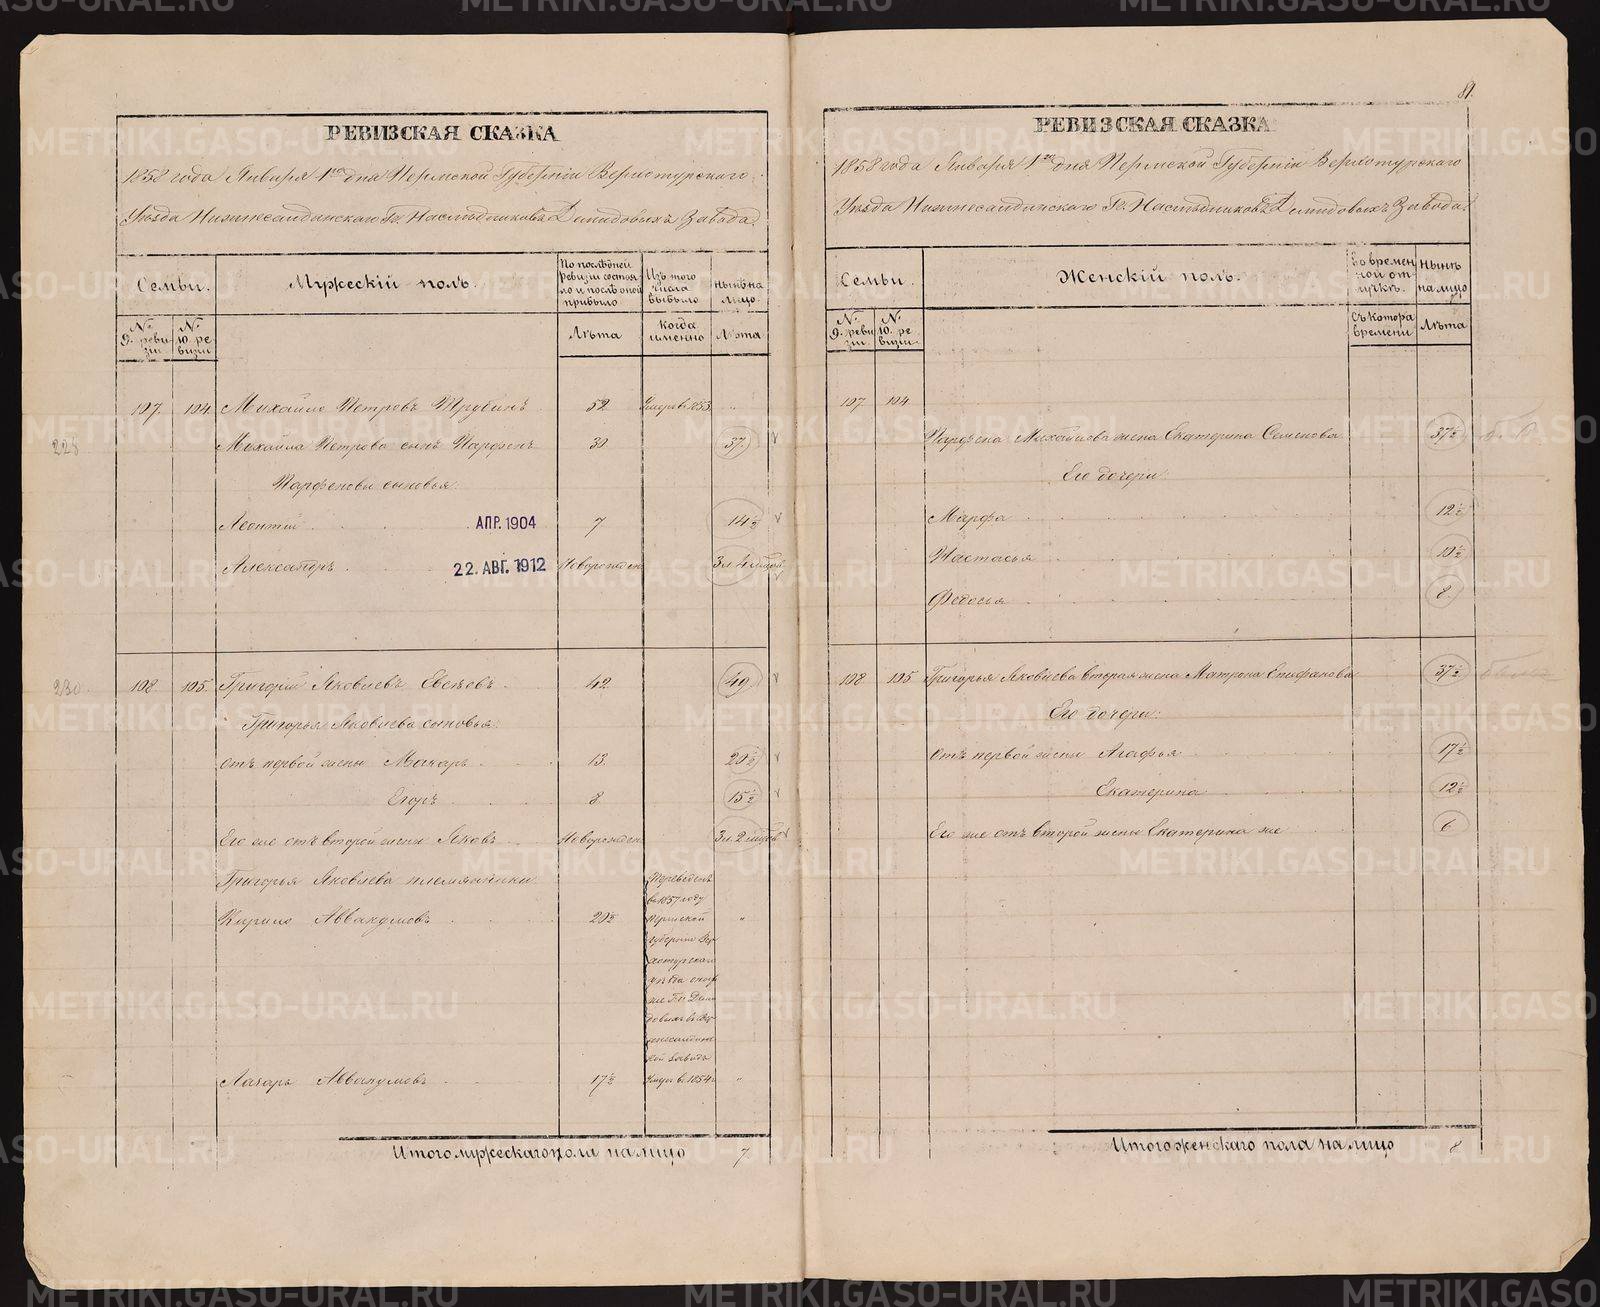 РЕВИЗСКАЯ СКАЗКА
1858 года Января 1го дня Пермской Губерніи Верхотурскаго
Уѣзда Нижнесалдинскаго Гг. Наслѣдниковъ Демидовыхъ Завода.
Семьи.
Мужескій полъ.
По послѣдней ревизіи состояло и послѣ оной прибыло
Изъ того числа выбыло
нынѣ на лицо.
№ 9. ревизіи
№ 10 ревизіи
Лѣта
Когда именно
Лѣта
107. 104. Михайло Петровъ Трубинъ 52 Умеръ в 1853. "
225
Михайла Петрова сынъ Парфенъ 30 37
Парфеновы сыновья:
Леонтій АПР. 1904 7 14½
Александръ 22. АВГ. 1912 Новорожден 3 л 4 мѣся
230
108. 105. Григорій Яковлевъ Евсѣевъ 42. 49
Григорья Яковлева сыновья:
отъ первой жены Макаръ 13. 20½
Егоръ 8. 15½
Его же отъ второй жены Яковъ Новорожден 3 л 2 мѣся
Григорья Яковлева племянники
Кирило Аввакумовъ 20½ "
Переведенъ
въ 1857 году
Пермской
губерніи Вер
хотурскаго
уѣзда
же Гг. Деми
довыхъ въ Вер
хнесалдинс
кой заводъ
Лазарь Аввакумовъ 17½ Умеръ в. 1854 г "
Итого мужескаго пола на лицо 7
81.
РЕВИЗСКАЯ СКАЗКА
1858 года Января 1го дня Пермской Губерніи Верхотурскаго
Уѣзда Нижнесалдинскаго Гг. Наслѣдниковъ Демидовыхъ Завода.
Семьи.
Женскій полъ.
Во временной отлучкѣ.
нынѣ на лицо
№ 9. ревизіи
№ 10. ревизіи
Съ котора времени
Лѣта
107 104
Парфена Михайлова жена Екатерина Семенова 37½
Его дочери:
Марфа 12½
Настасья 10½
Федосья 8.
108 105 Григорья Яковлева вторая жена Матрона Епифанова 37½
Его дочери:
отъ первой жены Агафья 17½
Екатерина 12½
Его же отъ второй жены Екатерина же 6
Итого женскаго пола на лицо 8
METRIKI.GASO-URAL.RU